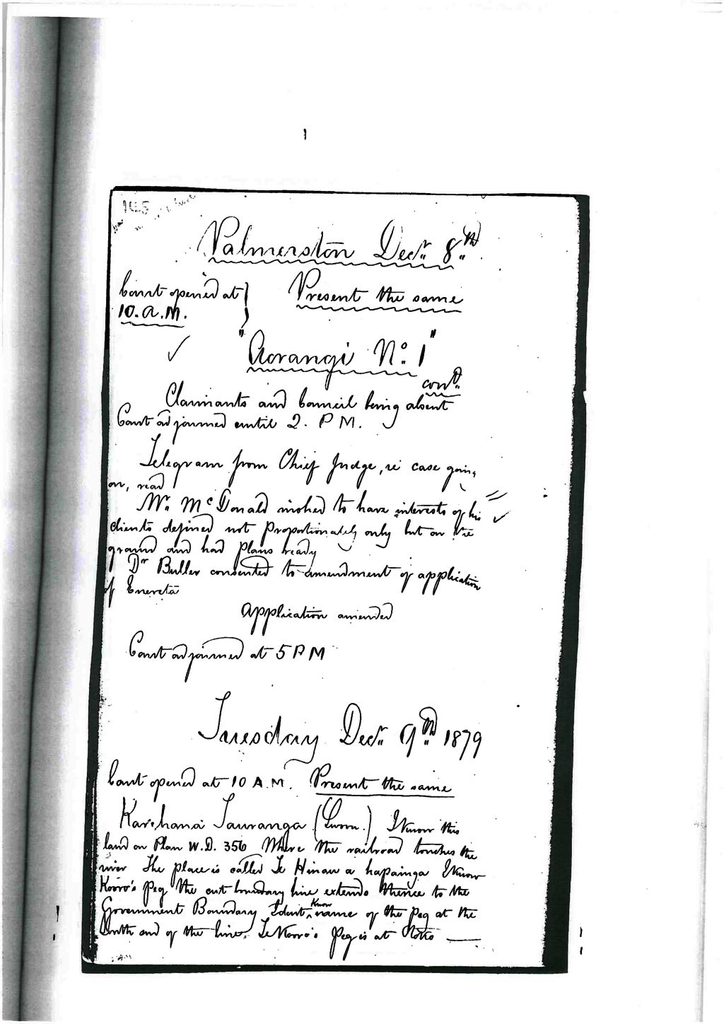 Palmerston Decr. 8th
Court opened at
10. A.M.
Present the same
"Aorangi No. 1"
contd.
Claimants and Council being absent
Court adjourned until 2. P M.
Telegram from Chief Judge, re case going
on, read
Mr. McDonald wished to have interests of his
clients defined not Proportionately only but on the
ground and had Plans ready
Dr Buller consented to amendment of application
of Enereta
Application amended
Court adjourned at 5 P M
Tuesday Decr. 9th 1879
Court opened at 10 A.M. Present the same
Karehana Tauranga (Sworn.) I Know this
land on Plan W.D. 356 Where the railroad touches the
river The place is called Te Hinau a hapainga I Know
Korro's Peg the cut boundary line extends thence to the
Government Boundary I don't Know name of the Peg at the
end of the line. Te Korro's Peg is at